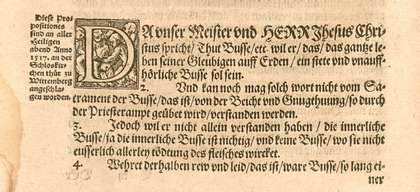 Diese Pro
positiones
sind an aller
Heiligen
abend Anno
1517. an der
Schloskir
chen thür zu
Wittemberg
angeschla-
gen worden.
DA vnser Meister vnd HERR Jhesus Chri
stus spricht / Thut Busse / etc. wil er / das / das gantze le
ben seiner Gleubigen auff Erden / ein stete vnd vnauff-
hörliche Busse sol sein.
2. Vnd kan noch mag solch wort nicht vom Sa-
crament der Busse / das ist / von der Beicht vnd Gnugthuung / so durch
der Priesterampt geübet wird / verstanden werden.
3. Jedoch wil er nicht allein verstanden haben / die innerliche
Busse / ja die innerliche Busse ist nichtig / vnd keine Busse / wo sie nicht
eusserlich allerley tödtung des fleisches wircket.
4. Wehret derhalben rew vnd leid / das ist / ware Busse / so lang ei
ner